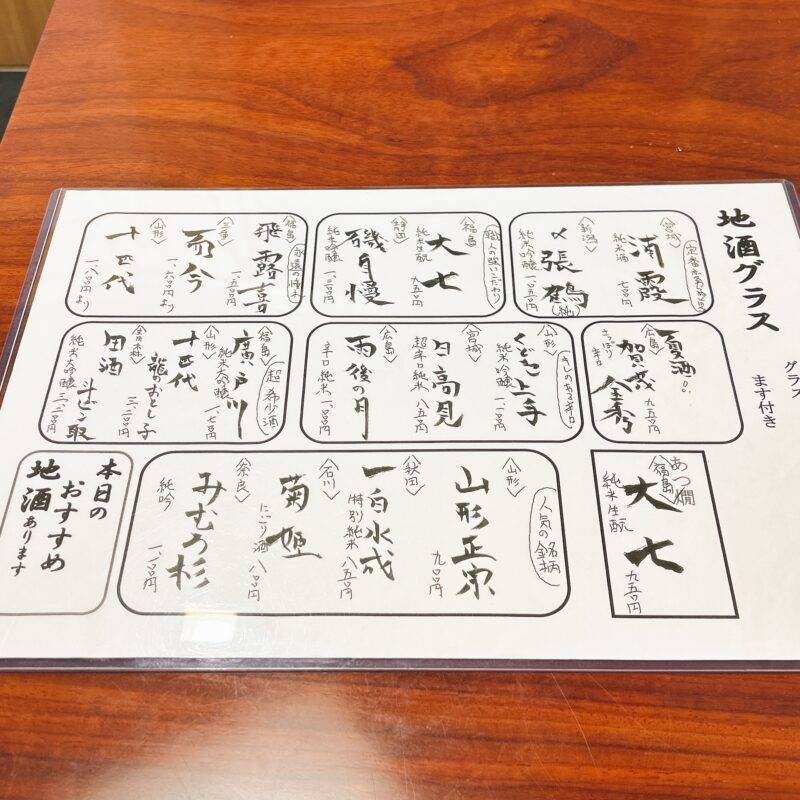 地酒グラス
グラス
ます付き
定番お勧め
宮城
浦霞
純米酒
七五〇円
新潟
〆張鶴(純)
純米大吟醸
職人の強いこだわり
福島
大七
純米生酛
九五〇円
静岡
磯自慢
純米吟醸
永遠の憧れ
福島
飛露喜
三重
而今
一、六〇〇円より
山形
十四代
一、八〇〇円より
夏酒!!
広島
賀茂金秀
さっぱり
辛口
九五〇円
キレのある辛口
山形
くどき上手
純米吟醸
宮城
日高見
超辛口純米
八五〇円
広島
雨後の月
辛口純米
超希少酒
福島
廣戸川
純米大吟醸
一、七〇〇円
山形
十四代
龍のおとし子
三、二〇〇円
青森
田酒
斗ビン取
純米大吟醸
三、二〇〇円
あつ燗
福島
大七
純米生酛
九五〇円
人気の銘柄
山形
山形正宗
九〇〇円
秋田
一白水成
特別純米
八五〇円
石川
菊姫
にごり酒
八〇〇円
奈良
みむろ杉
純吟
本日の
おすすめ
地酒
あります